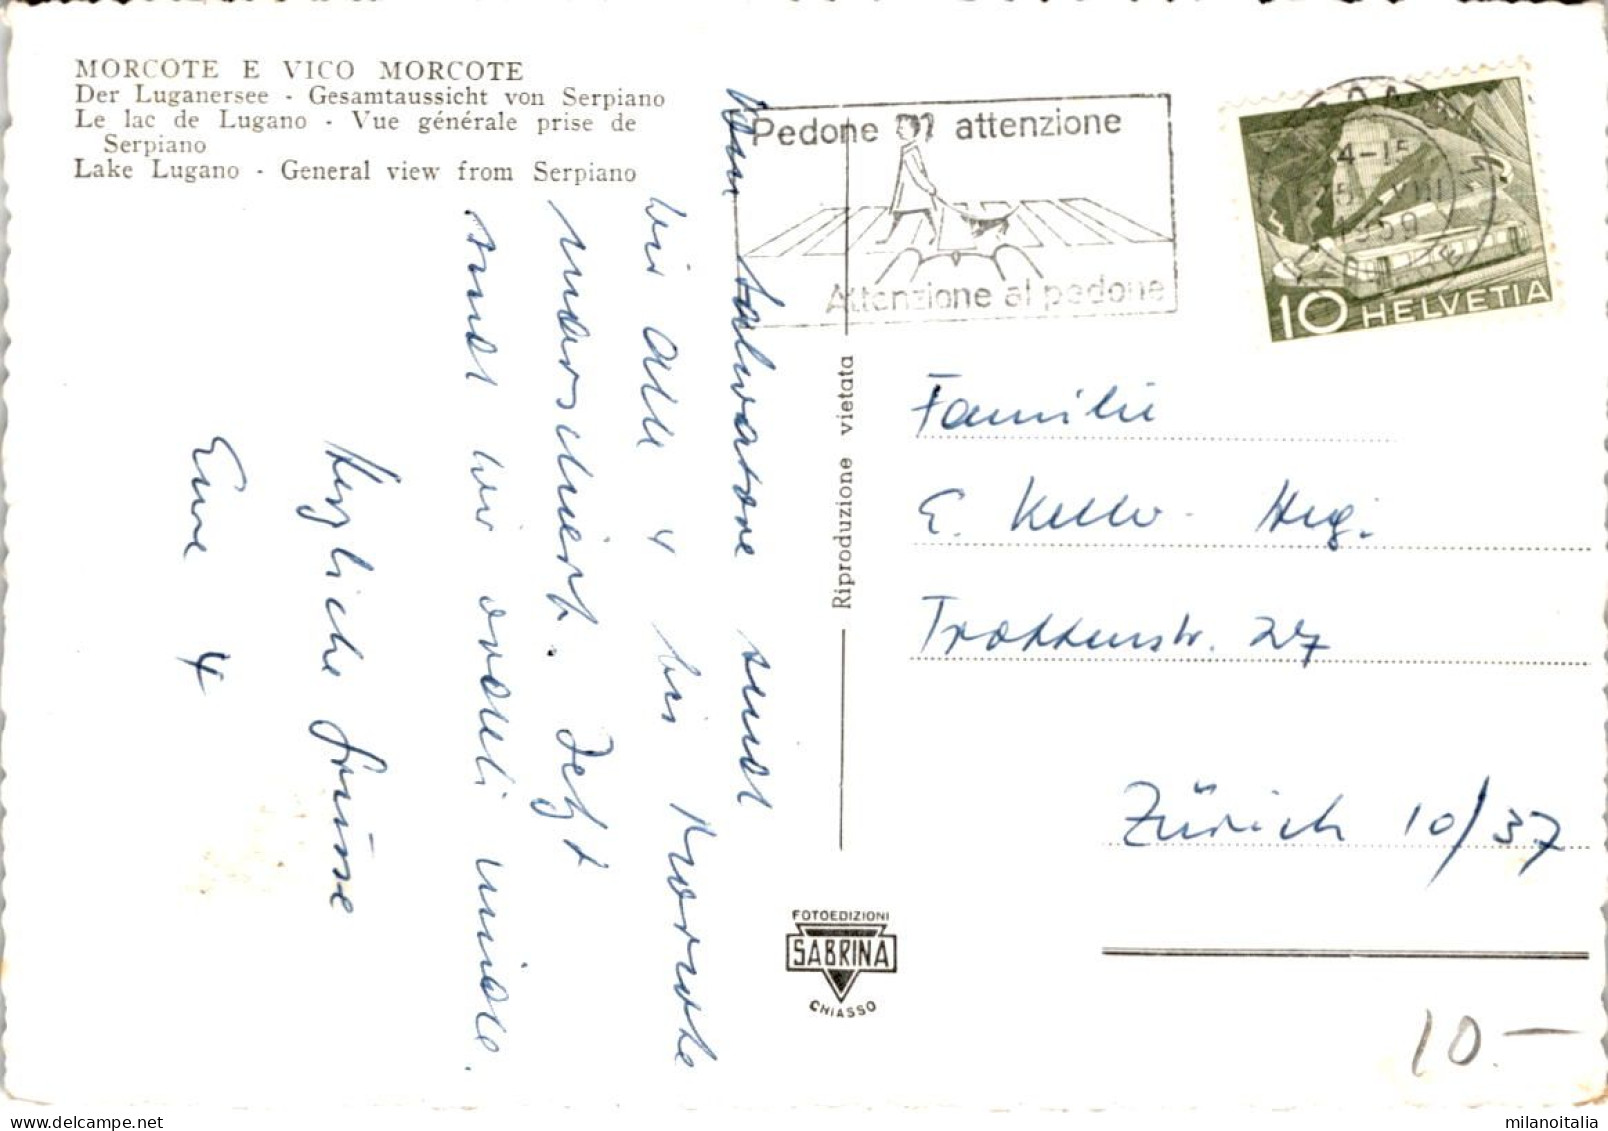 MORCOTE E VICO MORCOTE
Der Luganersee - Gesamtaussicht von Serpiano
Le lac de Lugano - Vue générale prise de
Serpiano
Lake Lugano - General view from Serpiano
Vom Salvatore sind
wir alle 4 bis Morcote
marschiert. Jetzt
sind wir ordeli müde.
Herzliche Grüsse
Eure 4
Riproduzione vietata
FOTOEDIZIONI
SABRINA
CHIASSO
Pedone attenzione
Attenzione al pedone
4-15
VIII
1959
10 HELVETIA
Familie
E. Keller - Hug.
Trottenstr. 27
Zürich 10/37
10.-
milanoitalia